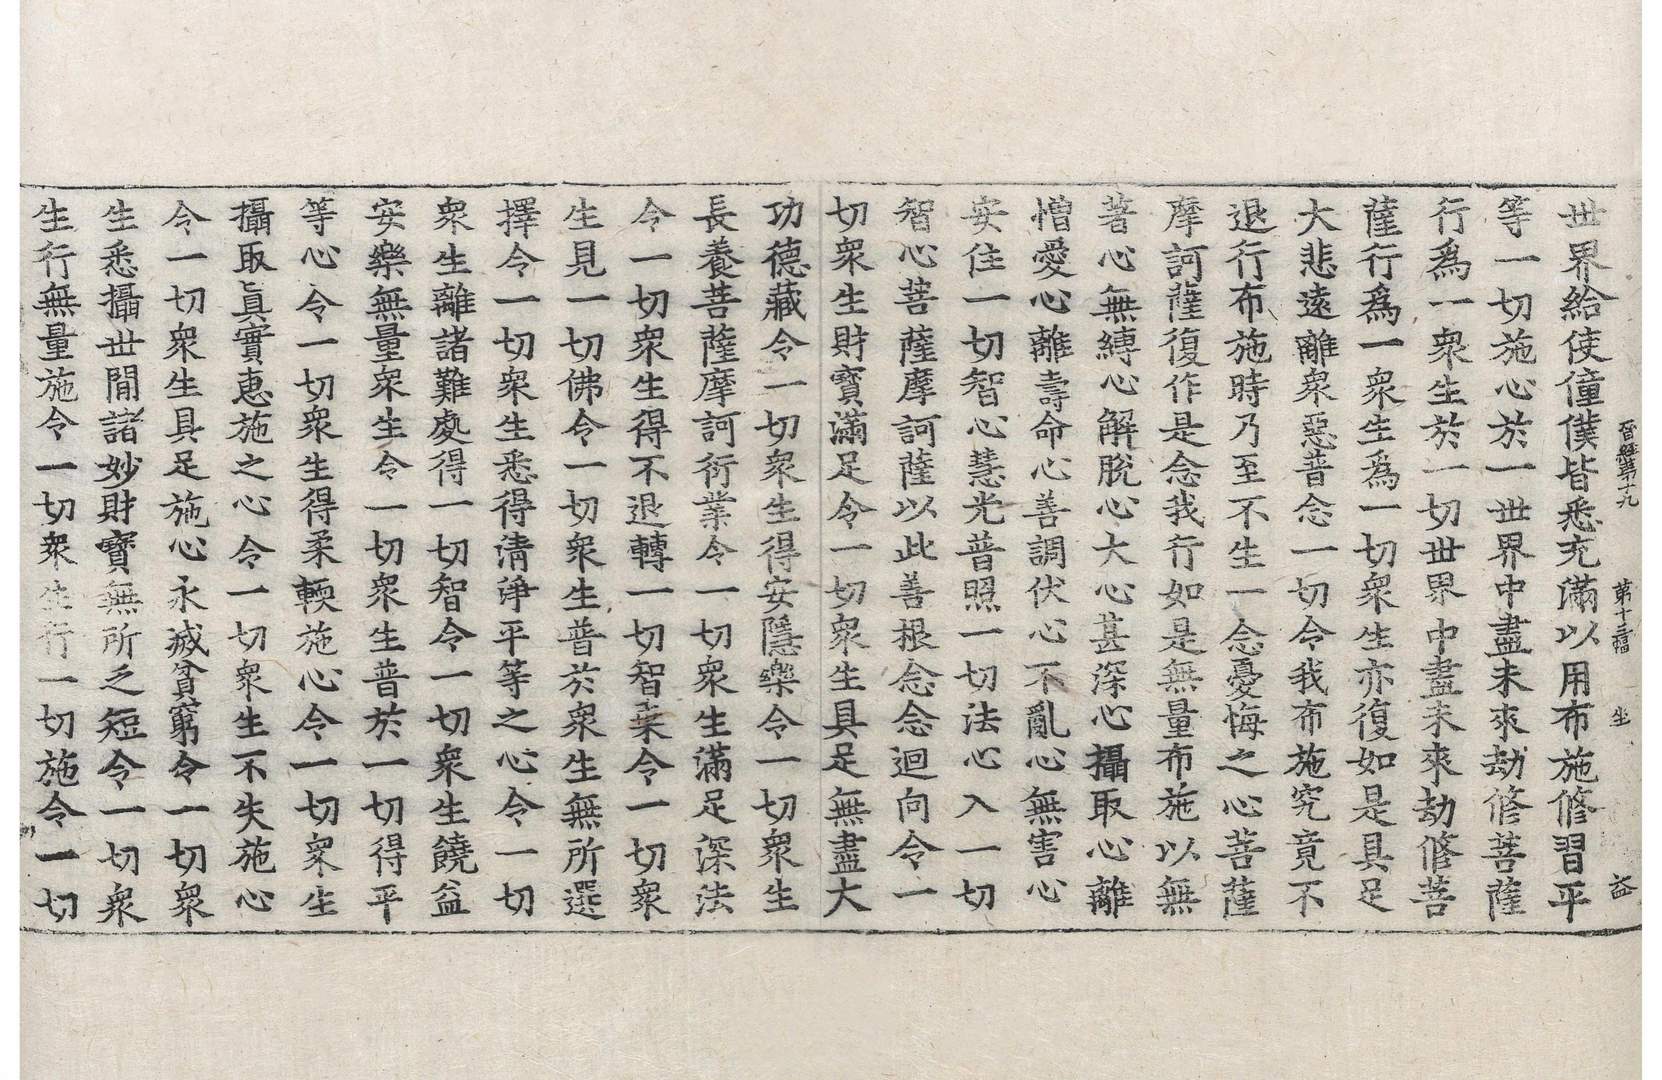 晉經第十九　第十二幅　坐　益
世界給使僮僕皆悉充滿以用布施修習平
等一切施心於一世界中盡未來劫修菩薩
行爲一衆生於一切世界中盡未來劫修菩
薩行爲一衆生爲一切衆生亦復如是具足
大悲遠離衆惡普念一切令我布施究竟不
退行布施時乃至不生一念憂悔之心菩薩
摩訶薩復作是念我行如是無量布施以無
著心無縛心解脫心大心甚深心攝取心離
憎愛心離壽命心善調伏心不亂心無害心
安住一切智心慧光普照一切法心入一切
智心菩薩摩訶薩以此善根念念迴向令一
切衆生財寶滿足令一切衆生具足無盡大
功德藏令一切衆生得安隱樂令一切衆生
長養菩薩摩訶衍業令一切衆生滿足深法
令一切衆生得不退轉一切智乘令一切衆
生見一切佛令一切衆生普於衆生無所選
擇令一切衆生悉得淸淨平等之心令一切
衆生離諸難處得一切智令一切衆生饒益
安樂無量衆生令一切衆生普於一切得平
等心令一切衆生得柔輭施心令一切衆生
攝取眞實惠施之心令一切衆生不失施心
令一切衆生具足施心永滅貧窮令一切衆
生悉攝世閒諸妙財寶無所乏短令一切衆
生行無量施令一切衆生行一切施令一切